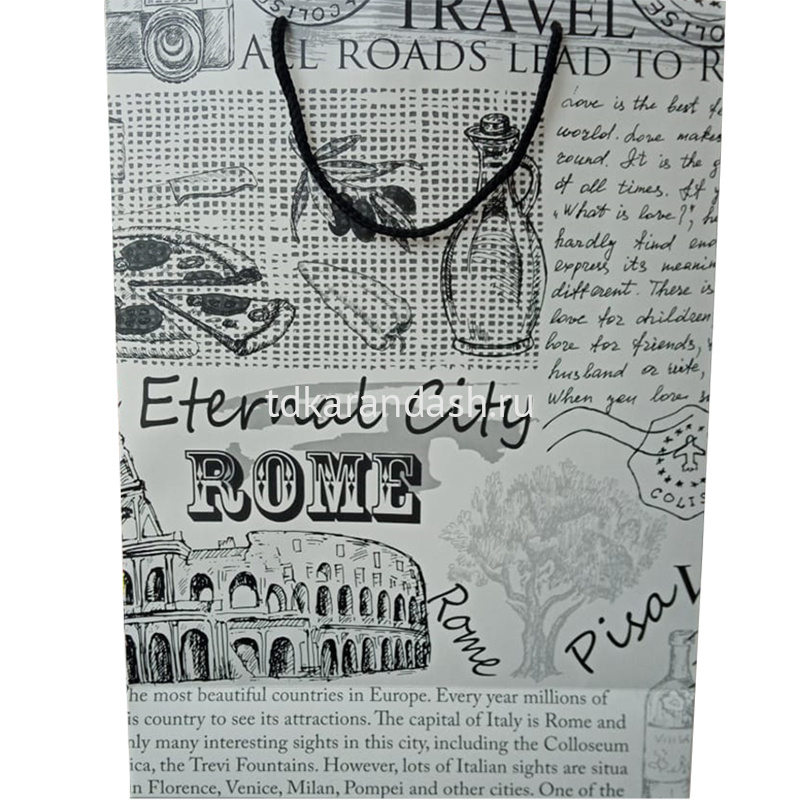 COLISE
COLISE
TRAVEL
ALL ROADS LEAD TO R
Love is the best
world. Love makes
round. It is the g
of all times. If y
„What is love?", he
hardly find eno
express its meanin
different. There is
love for children
love for friends,
husband or wife,
When you love so
Eternal City
tdkarandash.ru
ROME
COLIS
Rome
Pisa
he most beautiful countries in Europe. Every year millions of
is country to see its attractions. The capital of Italy is Rome and
nly many interesting sights in this city, including the Colloseum
ica, the Trevi Fountains. However, lots of Italian sights are situa
n Florence, Venice, Milan, Pompei and other cities. One of the